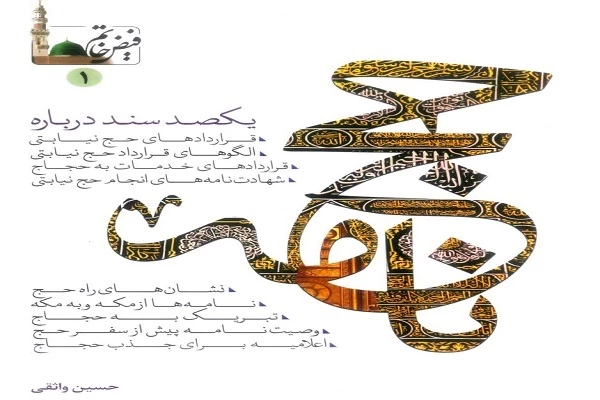 فیض خاتم
۱
حج نامه
یکصد سند درباره
قراردادهای حج نیابتی
الگوهای قرارداد حج نیابتی
قراردادهای خدمات به حجاج
شهادت‌نامه‌های انجام حج نیابتی
نشان‌های راه حج
نامه‌ها از مکه و به مکه
تبریک به حجاج
وصیت نامه پیش از سفر حج
اعلامیه برای جذب حجاج
حسین واثقی